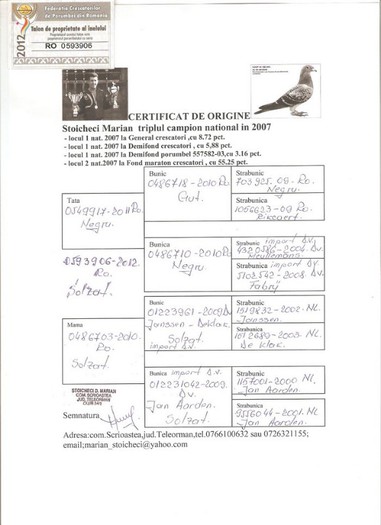 2012
Federatia Crescatorilor
de Porumbei din Romania
Talon de proprietate al inelului
RO 0593906
CERTIFICAT DE ORIGINE
Stoicheci Marian triplul campion national in 2007
- locul 1 nat. 2007 la General crescatori ,cu 8.72 pct.
- locul 1 nat. 2007 la Demifond crescatori , cu 5,88 pct.
- locul 1 nat. 2007 la Demifond porumbel 557582-03,cu 3.16 pct.
- locul 2 nat.2007 la Fond maraton crescatori , cu 55.25 pct.
Tata
0549917-2011 Ro.
Negru.
0593906-2012.
Ro.
Solzat.
Mama
0486703-2010.
Ro.
Solzat.
Bunic
0486718-2010 Ro.
Gut.
Bunica
0486710-2010 Ro
Negru.
Bunic
01223961-2009 Dv
Janssen-Deklak.
Solzat.
import Dv.
Bunica import Dv.
01231042-2009.
Dv
Jan Aarden.
Solzat.
Strabunic
703925.09-Ro.
Negru.
Strabunica
1056623-09 Ro
Strabunic import Dv.
4320586-2006 Dv
Meulemans
Strabunica import Dv.
5103542-2008. Dv.
Fabry
Strabunic
1519832-2002-NL.
Janssen.
Strabunica
1012680-2003-NL.
De Klak.
Strabunic
1157001-2000 NL.
Jan Aarden.
Strabunica
9556044-2001. NL
Jan Aarden.
STOICHECI D. MARIAN
COM. SCRIOASTEA
JUD. TELEORMAN
Semnatura
Adresa:com.Scrioastea,jud.Teleorman,tel.0766100632 sau 0726321155;
email;marian_stoicheci@yahoo.com